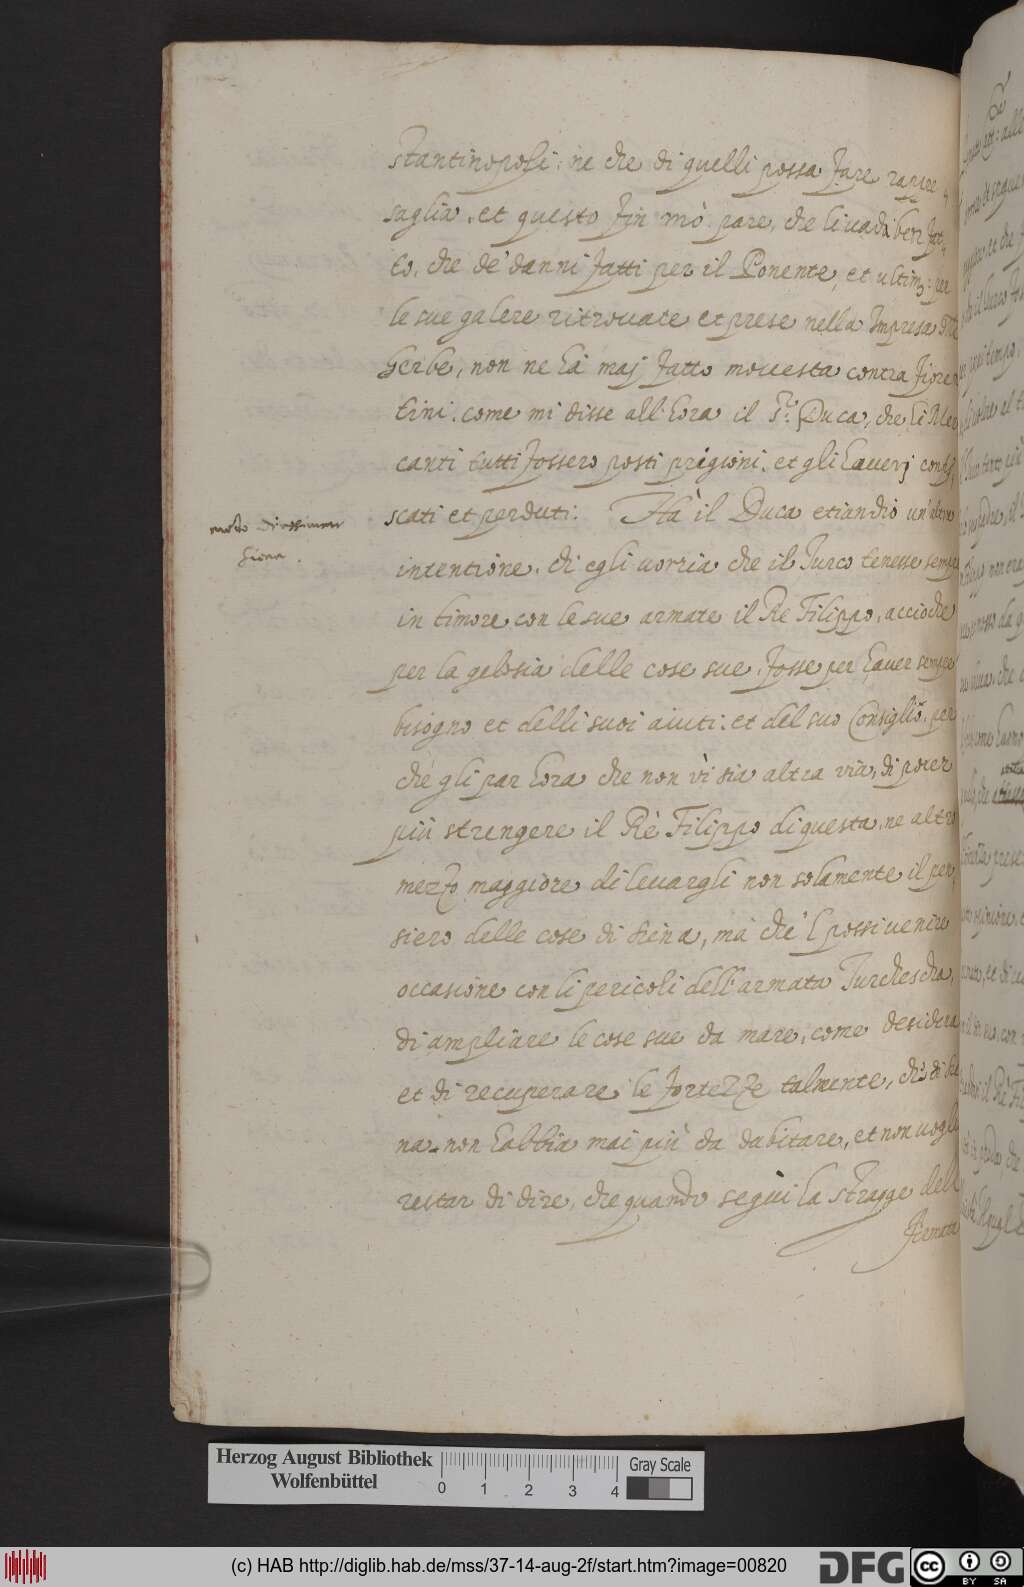 stantinopoli: ne che di quelli possa fare rapre-
saglia. et questo fin mò pare, che li uadi ben fat-
to, che de' danni fatti per il Ponente, et ultim: per
le sue galere ritrouate et prese nella Impresa
Gerbe, non ne hà maj fatto mouesta contra fioren
tini. come mi disse all'hora il S.r Duca, che li Mer
canti tutti fossero posti prigioni. et gli haueri confi
scati et perduti. Hà il Duca etiandio un'altra
intentione. di egli uorria che il Turco tenesse sempre
in timore con le sue armate il Rè Filippo, acciochè
per la gelosia delle cose sue, fosse per hauer sempre
bisogno et delli suoi aiuti. et del suo Consiglio. per
chè gli par hora che non vì sia altra via, di poter
più strengere il Rè Filippo di questa. ne altro
mezzo maggiore di leuargli non solamente il pen
siero delle cose di Siena, mà che'l possi uenire
occasione con li pericoli dell'armata Turchescha,
di ampliare le cose sue da mare, come desidera
et di recuperare le fortezze talmente, chè di Sie
na non habbia mai più da dubitare, et non uoglio
restar di dire, che quando seguì la stragge dell
Armata